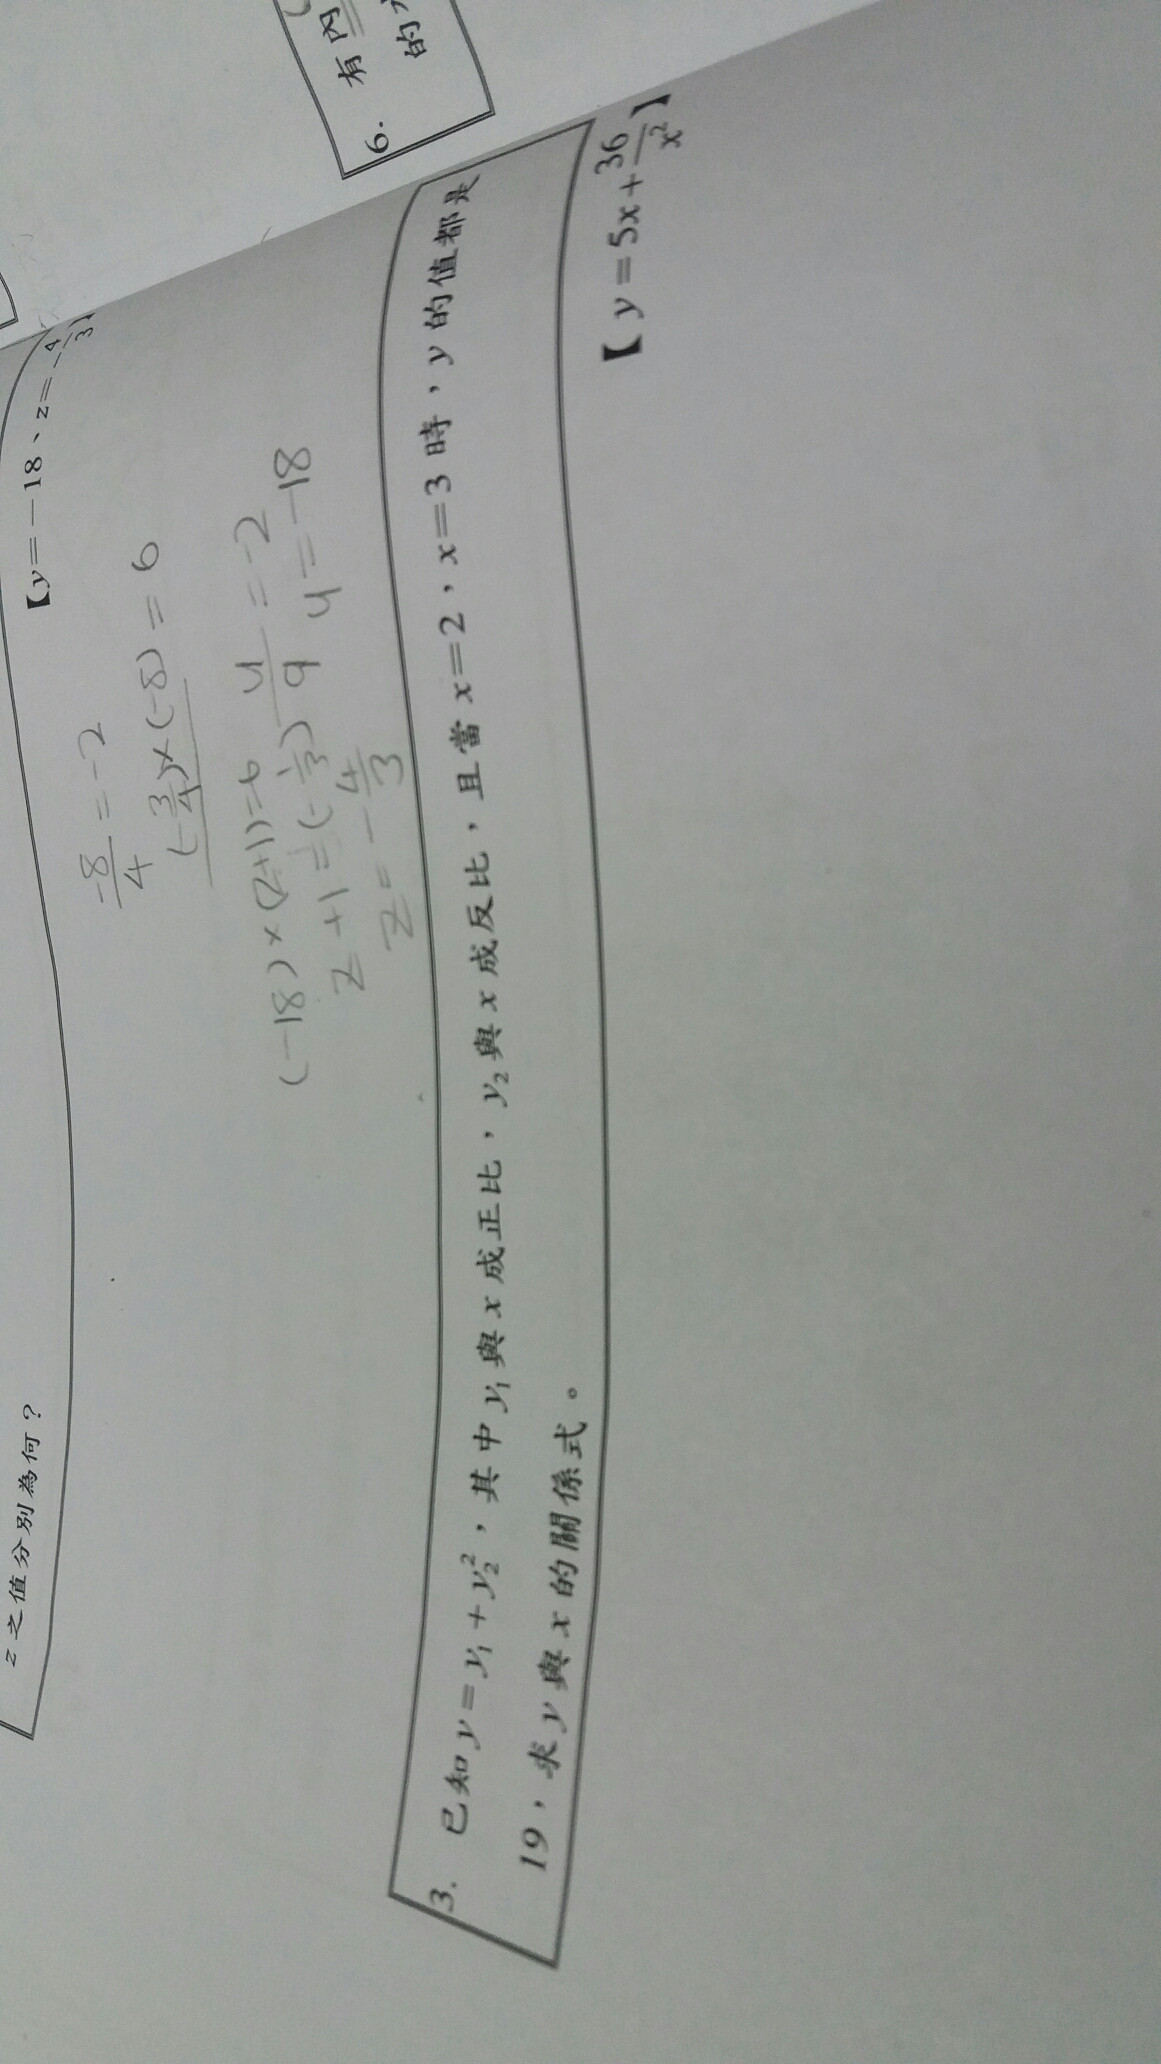 z之值分別為何?
【y=-18、z=-4/3】
-8/4=-2
(-3/4)×(-8)=6
(-18)×(z+1)=6
y/9=-2
z+1=(-1/3)
y=-18
z=-4/3
3. 已知y=y₁+y₂²,其中y₁與x成正比,y₂與x成反比,且當x=2,x=3時,y的值都是
19,求y與x的關係式。
【y=5x+36/x²】
6. 有內
的